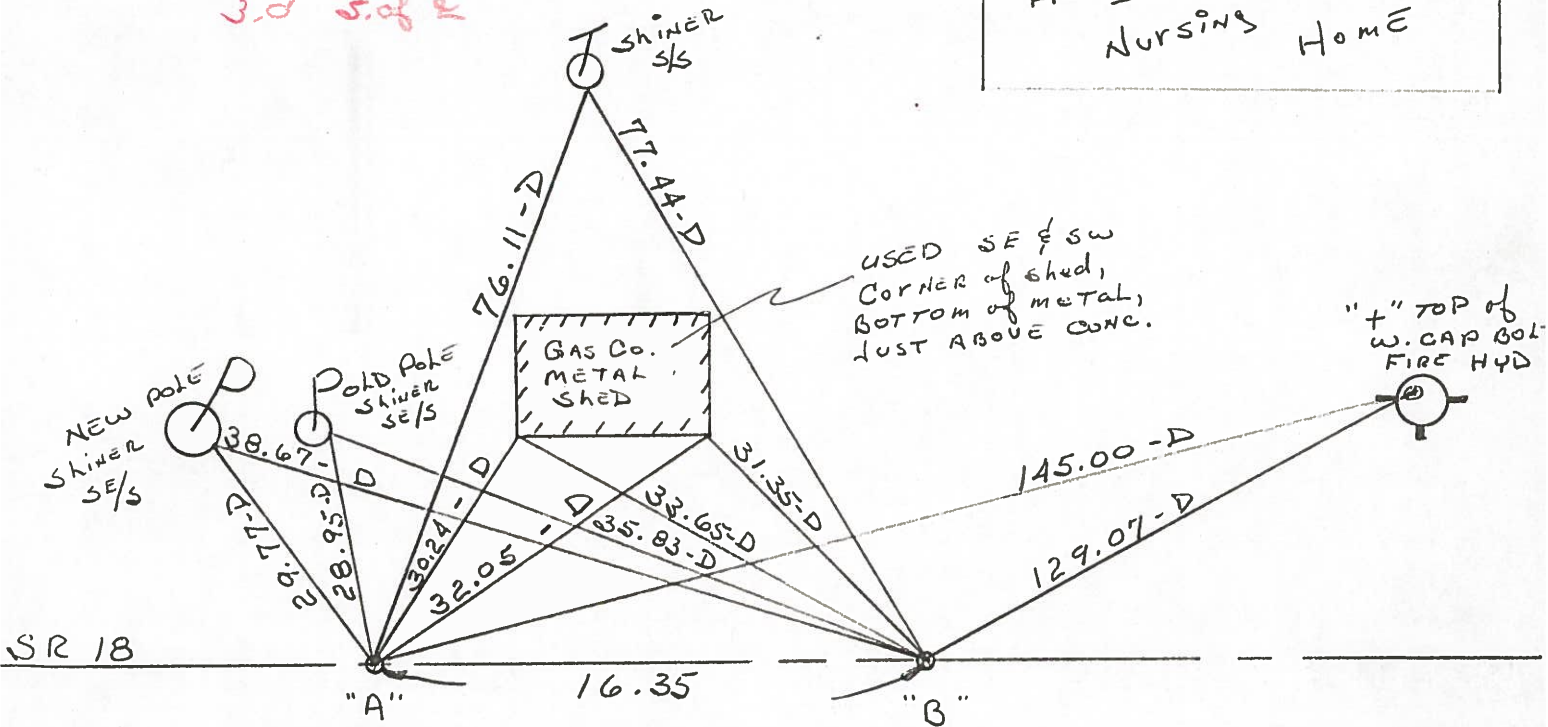 3.0 S. of
Nursing Home
Shiner
S/S
76.11-D
77.44-D
USED SE & SW
Corner of shed,
Bottom of metal,
Just above conc.
Gas Co.
Metal
Shed
New Pole
Shiner
SE/S
Old Pole
Shiner
SE/S
"+" Top of
W. Cap Bolt
Fire Hyd
38.67-D
29.77-D
28.95-D
30.24-D
32.05-D
33.65-D
35.83-D
31.35-D
145.00-D
129.07-D
SR 18
"A"
16.35
"B"